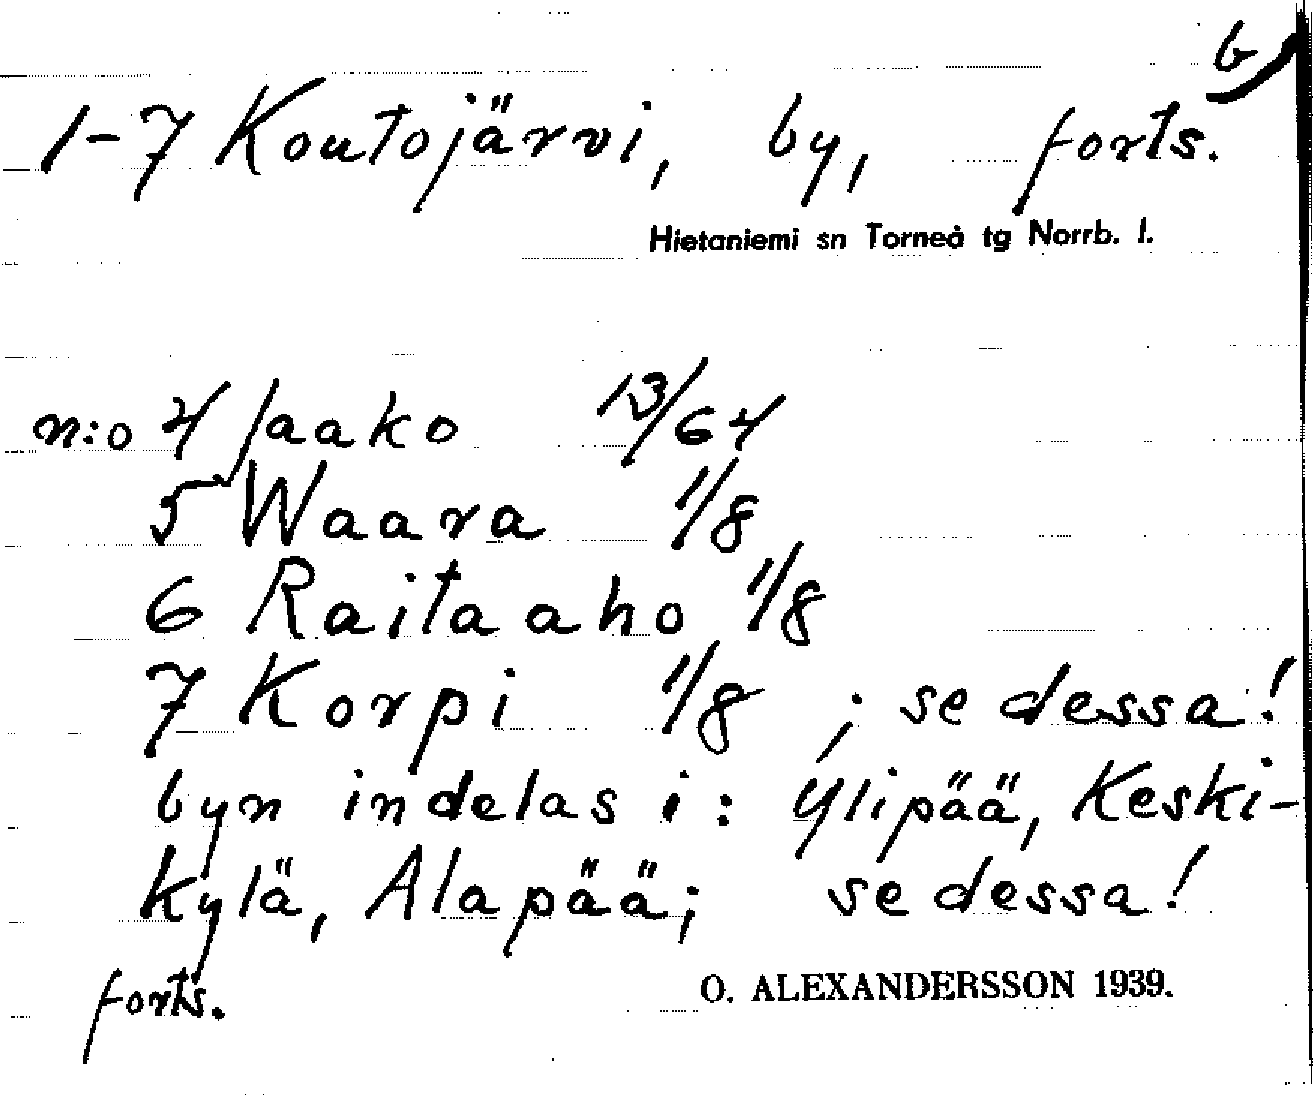 b)
1-7 Koutojärvi, by, forts.
Hietaniemi sn Torneå tg Norrb. l.
n:o 4 Jaako 13/64
5 Waara 1/8
6 Raitaaho 1/8
7 Korpi 1/8 ; se dessa!
byn indelas i: Ylipää, Keski-
kylä, Alapää; se dessa!
forts.
O. ALEXANDERSSON 1939.